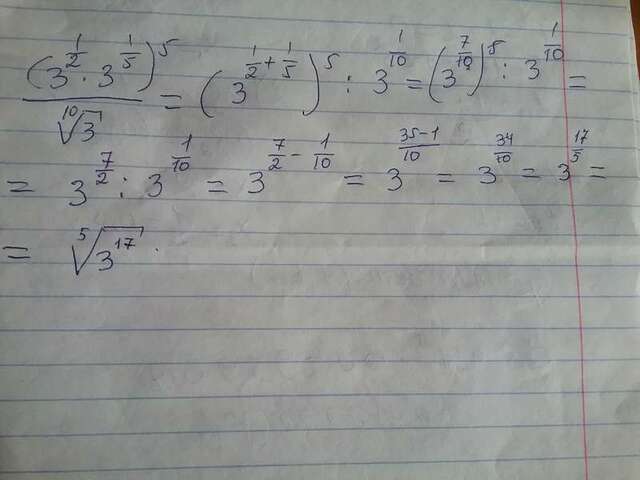 (3^{1/2} · 3^{1/5})^5 / \sqrt[10]{3} = (3^{1/2 + 1/5})^5 : 3^{1/10} = (3^{7/10})^5 : 3^{1/10} =
= 3^{7/2} : 3^{1/10} = 3^{7/2 - 1/10} = 3^{(35-1)/10} = 3^{34/10} = 3^{17/5} =
= \sqrt[5]{3^{17}} .